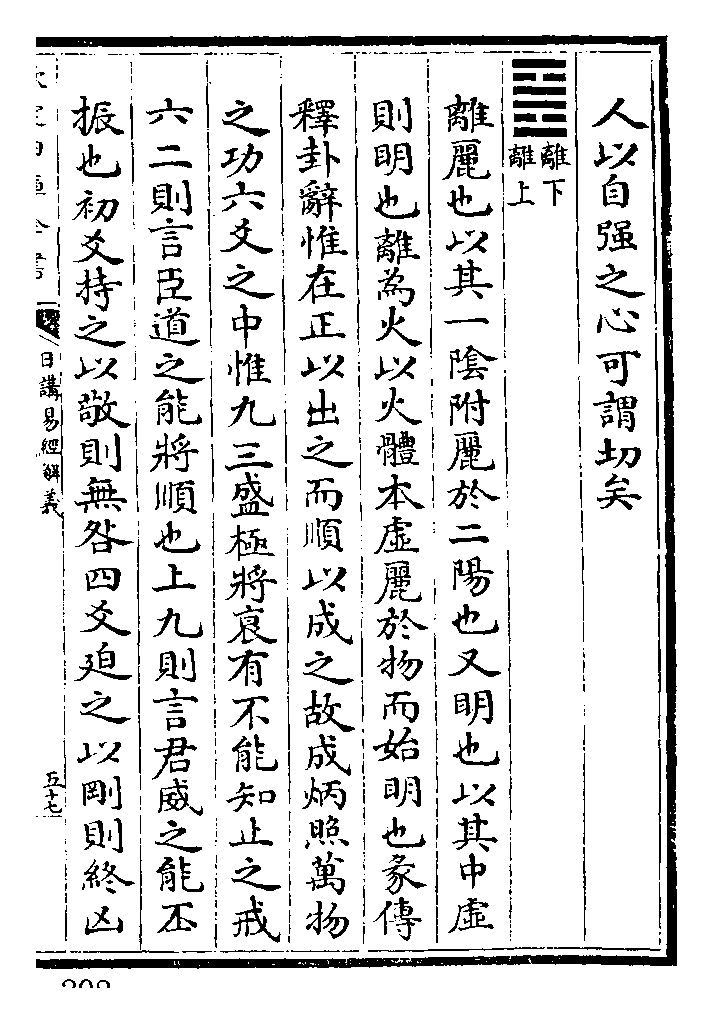 人以自强之心可謂切矣
離下
離上
離麗也以其一陰附麗於二陽也又明也以其中虛
則明也離為火以火體本虛麗於物而始明也彖傳
釋卦辭惟在正以出之而順以成之故成炳照萬物
之功六爻之中惟九三盛極將衰有不能知止之戒
六二則言臣道之能將順也上九則言君威之能丕
振也初爻持之以敬則無咎四爻廹之以剛則終凶
日講易經解義
五十七